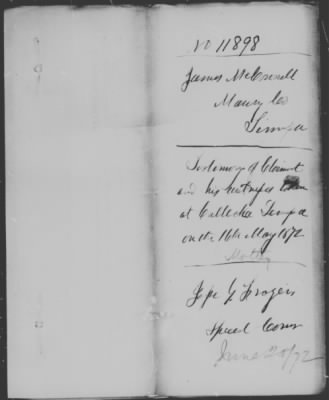 No 11898
James McConnell
Maury Co
Tennee
Testimony of Claimant
and his witnesses taken
at Culleoka Tenne
on the 16th May 1872
Jno Y Frogers
Specl Comr
June 20/72